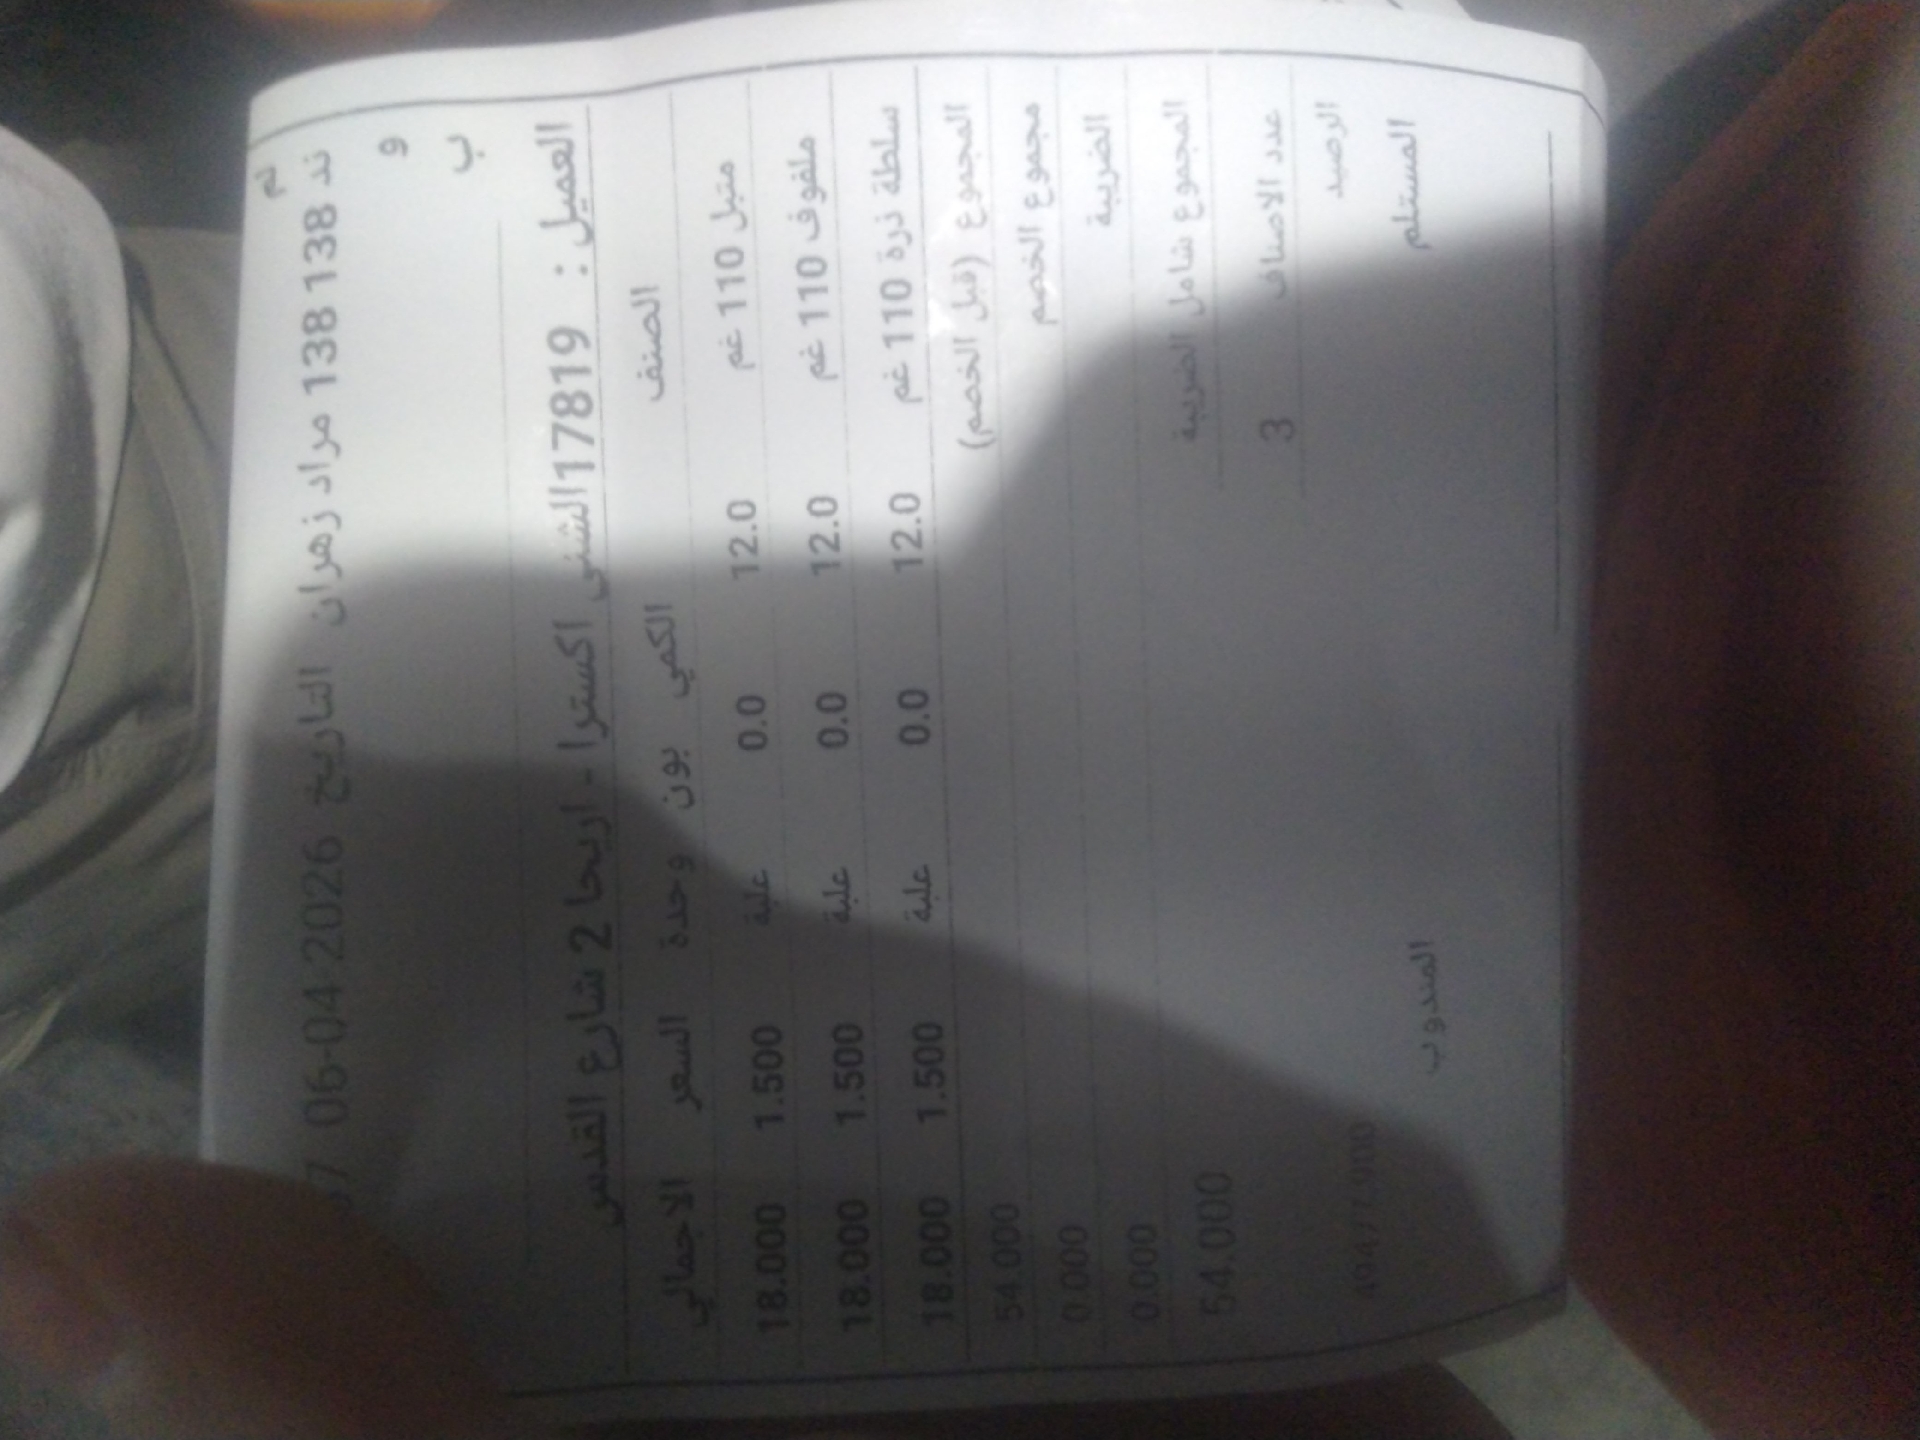 138 138 مراد زهران التاريخ 2026-04-06
و
ب
العميل : 17819الشني اكسترا - اريحا 2 شارع القدس
الصنف الكمي بون وحدة السعر الاجمالي
متبل 110 غم 12.0 0.0 علبة 1.500 18.000
ملفوف 110 غم 12.0 0.0 علبة 1.500 18.000
سلطة ذرة 110 غم 12.0 0.0 علبة 1.500 18.000
المجموع (قبل الخصم) 54.000
مجموع الخصم 0.000
الضريبة 0.000
المجموع شامل الضريبة 54.000
عدد الاصناف 3
الرصيد
المستلم المندوب